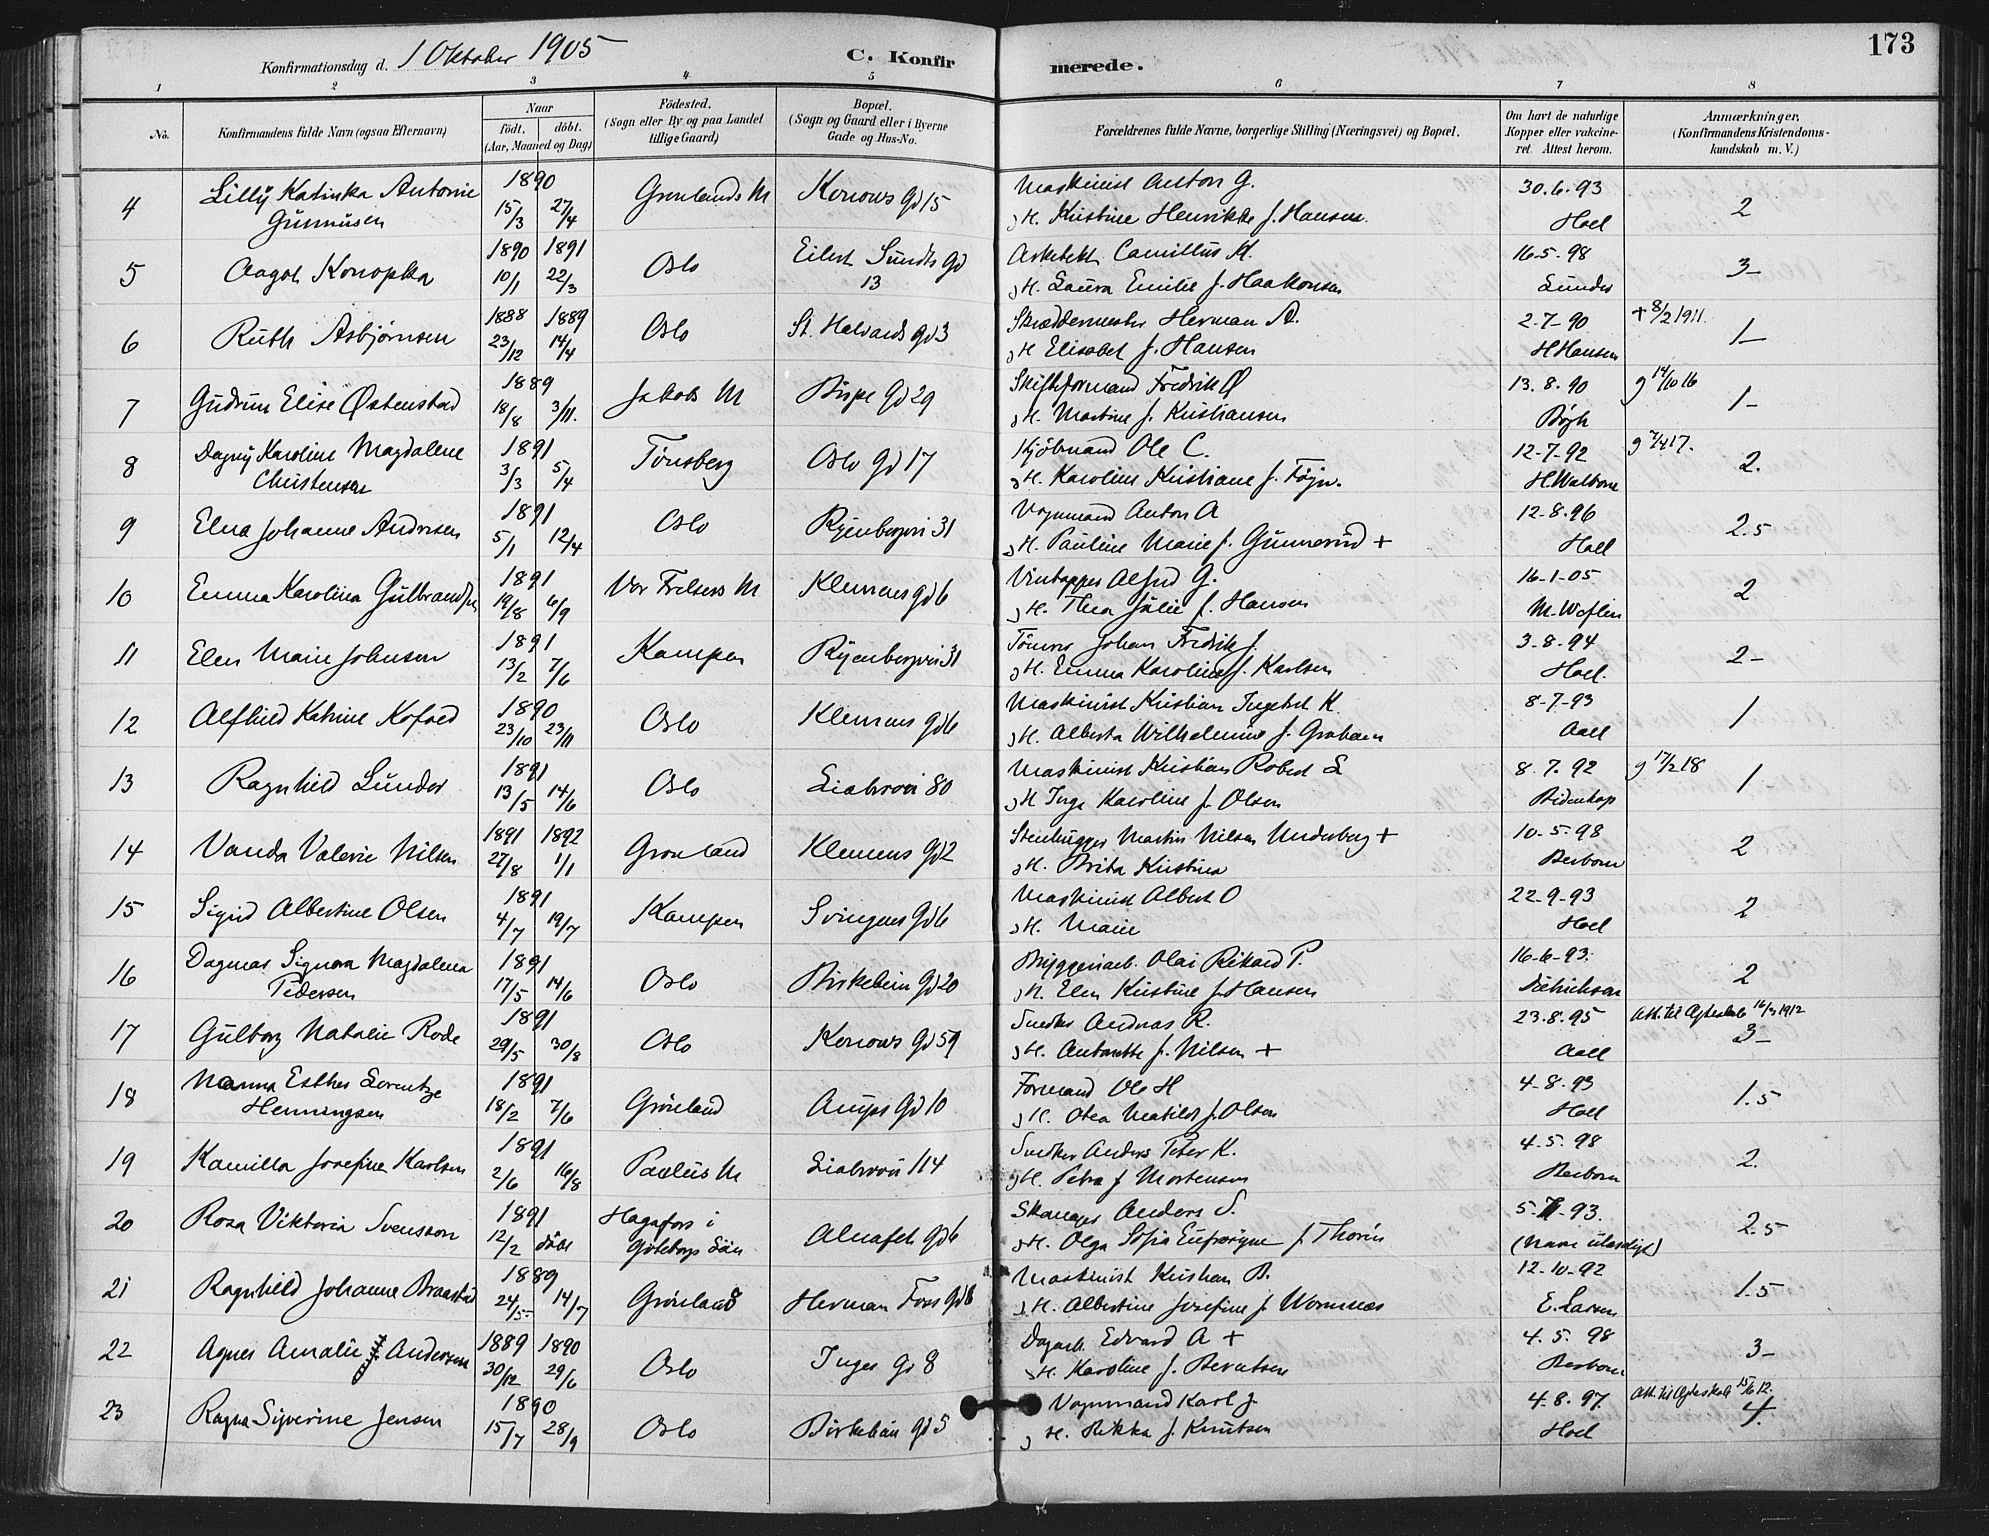 Konfirmationsdag d. 1 Oktober 1905
C. Konfirmerede.
173
1 2 3 4 5 6 7 8
No. Konfirmandens fulde Navn (ogsaa Efternavn) Naar født. døbt. (Aar, Maaned og Dag) Födested. (Sogn eller By og paa Landet tillige Gaard) Bopæl. (Sogn og Gaard eller i Byerne Gade og Hus-No. Forældrenes fulde Navne, borgerlige Stilling (Næringsvei) og Bopæl. Om havt de naturlige Kopper eller vakcineret. Attest herom. Anmærkninger, (Konfirmandens Kristendomskundskab m. V.)
4 Lilly Katinka Antonie Gunnusen 1890 15/3 27/4 Grønlands M Konows Gd 15 Maskinist Anton G. 30.6.93
H. Kristine Henrikke f. Hansen. Hoel 2
5 Aagot Konopka 1890 10/1 1891 22/3 Oslo Eilert Sundts Gd 13 Arkitekt Camillus K. 16.5-98
H. Laura Emilie f. Haakonsen Lunder 3-
6 Ruth Asbjørnsen 1888 23/12 1889 14/4 Oslo St. Halvards gd 3 Skræddermester Herman A. 2-7-90 + 8/2 1911.
H Elisabet f. Hansen H Hansen 1-
7 Gudrun Elise Østenstad 1889 18/8 3/11. Jakobs M Bispe Gd 29 Skifteformand Fredrik Ø 13.8.90 g 14/10 16
H. Martine f. Kristiansen Bøgh 1-
8 Dagny Karoline Magdalene Christensen 1891 3/3 5/4 Tønsberg Oslo Gd 17 Kjøbmand Ole C. 12-7-92
H. Karoline Kristiane f. Føyn. 2.
9 Elna Johanne Andresen 1891 5/1 12/4 Oslo Ryenbergvei 31 Vognmand Anton A 12-8.96
H. Pauline Marie f. Gunnerud + Hoel 2.5
10 Emma Karolina Gulbrandsen 1891 19/8 6/9 Vor Frelsers M Klemens gd 6 Vintapper Alfred G. 16-1-05
H. Thea Julie f. Hansen 2
11 Elen Marie Johnsen 1891 13/2 7/6 Kampen Ryenbergvei 31 Tømrer Johan Fredrik J. 3-8-94
H. Emma Karoline f. Karlsen Hoel. 2-
12 Alfhild Katrine Kofoed 1890 23/10 23/11 Oslo Klemens gd 6 Maskinist Kristian Ingebret K. 8-7-93
H. Alberta Wilhelmine f. Graham Aall 1
13 Ragnhild Lunder 1891 13/5 14/6 Oslo Liabrovei 80 Maskinist Kristian Robert L 8.7.92 g 17/2 18
H Inga Karoline f. Olsen Bidenkap 1-
14 Vanda Valerie Nilsen 1891 27/8 1892 1/1 Grønland Klemens Gd 2 Stenhugger Martin Nilsen Underberg + 10-5-98
H. Brita Kristina Berbom 2
15 Sigrid Albertine Olsen 1891 4/7 19/7 Kampen Svingens Gd 6 Maskinist Albert O 22-9-93
H. Marie Hoel 2
16 Dagmar Signora Magdalena Pedersen 1891 17/5 14/6 Oslo Birkebein Gd 20 Bryggeriarb. Olai Rikard P. 16-6-93.
H. Elen Kristine f. Hansen Dietrichson 2
17 Gulborg Natalie Rode 1891 29/5 30/8 Oslo Konows Gd 59 Snedker Andreas R. 23.8.95 Att. til Ægteskab 16/3 1912
H. Antonette f. Nilsen + Aall 3-
18 Nanna Esther Lorentze Henningsen 1891 18/2 7/6 Grønland Amps Gd 10 Formand Ole H 4-8.93
H. Otea Matilde f. Olsen Hoel 1.5
19 Kamilla Josefine Karlsen 1891 2/6 16/8 Paulus M Liabrovei 114 Snedker Anders Peter K. 4.5.98
H. Petra f Mortensen Berbom 2.
20 Rosa Viktoria Svensson 1891 12/2 døbt Hagafors i Göteborgs Län Alnafet gd 6 Anders S. 5-7-93.
H. Olga Sofia Eufrosyne f. Thorin (Navn ulæseligt) 2.5
21 Ragnhild Johanne Braastad 1889 24/5 14/7 Grønland Herman Foss Gd 8 Maskinist Kristian B. 12-10-92
H. Albertine Josefine f. Wormnes E. Larsen 1.5
22 Agnes Amalie Andersen 1889 30/12 1890 29/6 Oslo Inges Gd 8 Dagarb. Edvard A + 4.5.98
H. Karoline f. Berntsen Berbom 3-
23 Ragna Syverine Jensen 1890 15/7 28/9 Oslo Birkebein gd 5 Vognmand Karl J. 4.8.97. Att. til Ægteskab 15/6 12.
H. Rikka f. Knutsen Hoel 4.